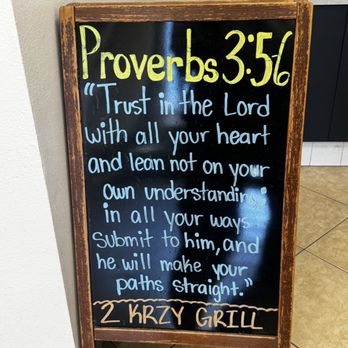 Proverbs 3:5-6
"Trust in the Lord
with all your heart
and lean not on your
own understanding
in all your ways
Submit to him, and
he will make your
paths straight."
2 KRZY GRILL